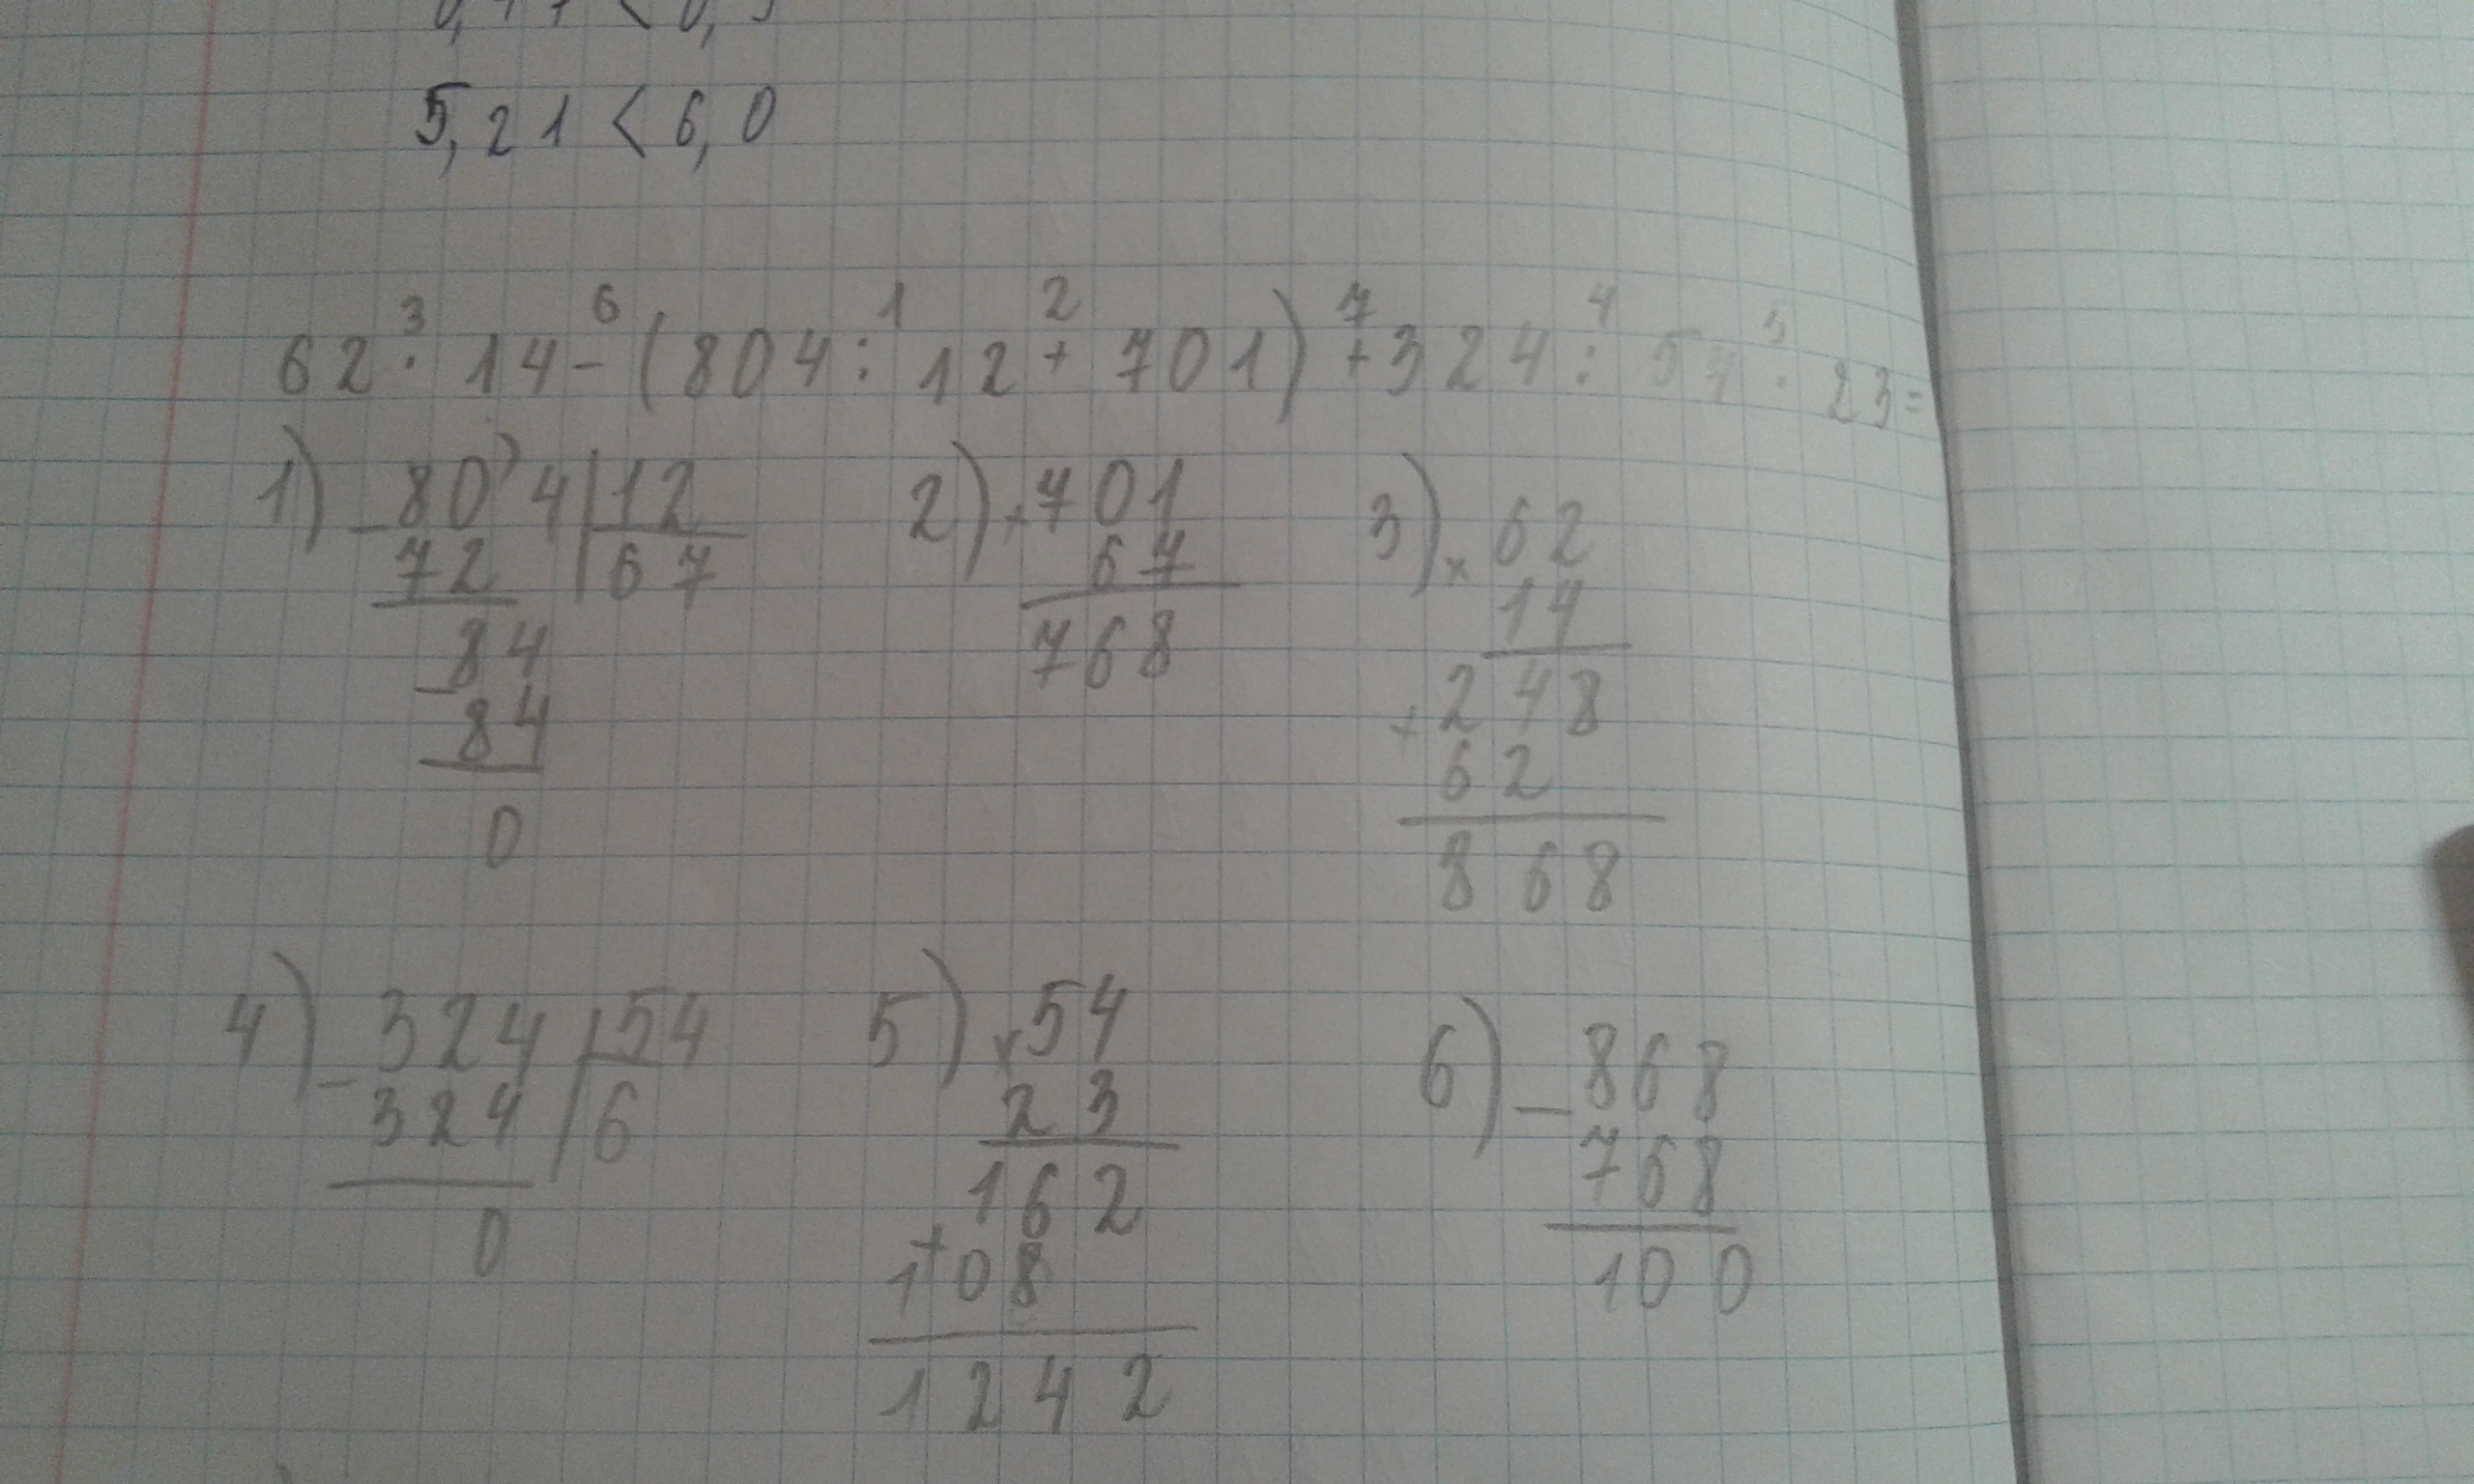 5,21 < 6,0
3 6 1 2 7 4 5
62 · 14 - (804 : 12 + 701) + 324 : 54 · 23 =
1) - 804 | 12
72 | 67
- 84
84
0
2) + 701
67
768
3) x 62
14
+ 248
62
868
4) - 324 | 54
324 | 6
0
5) x 54
23
162
+ 108
1242
6) - 868
768
100